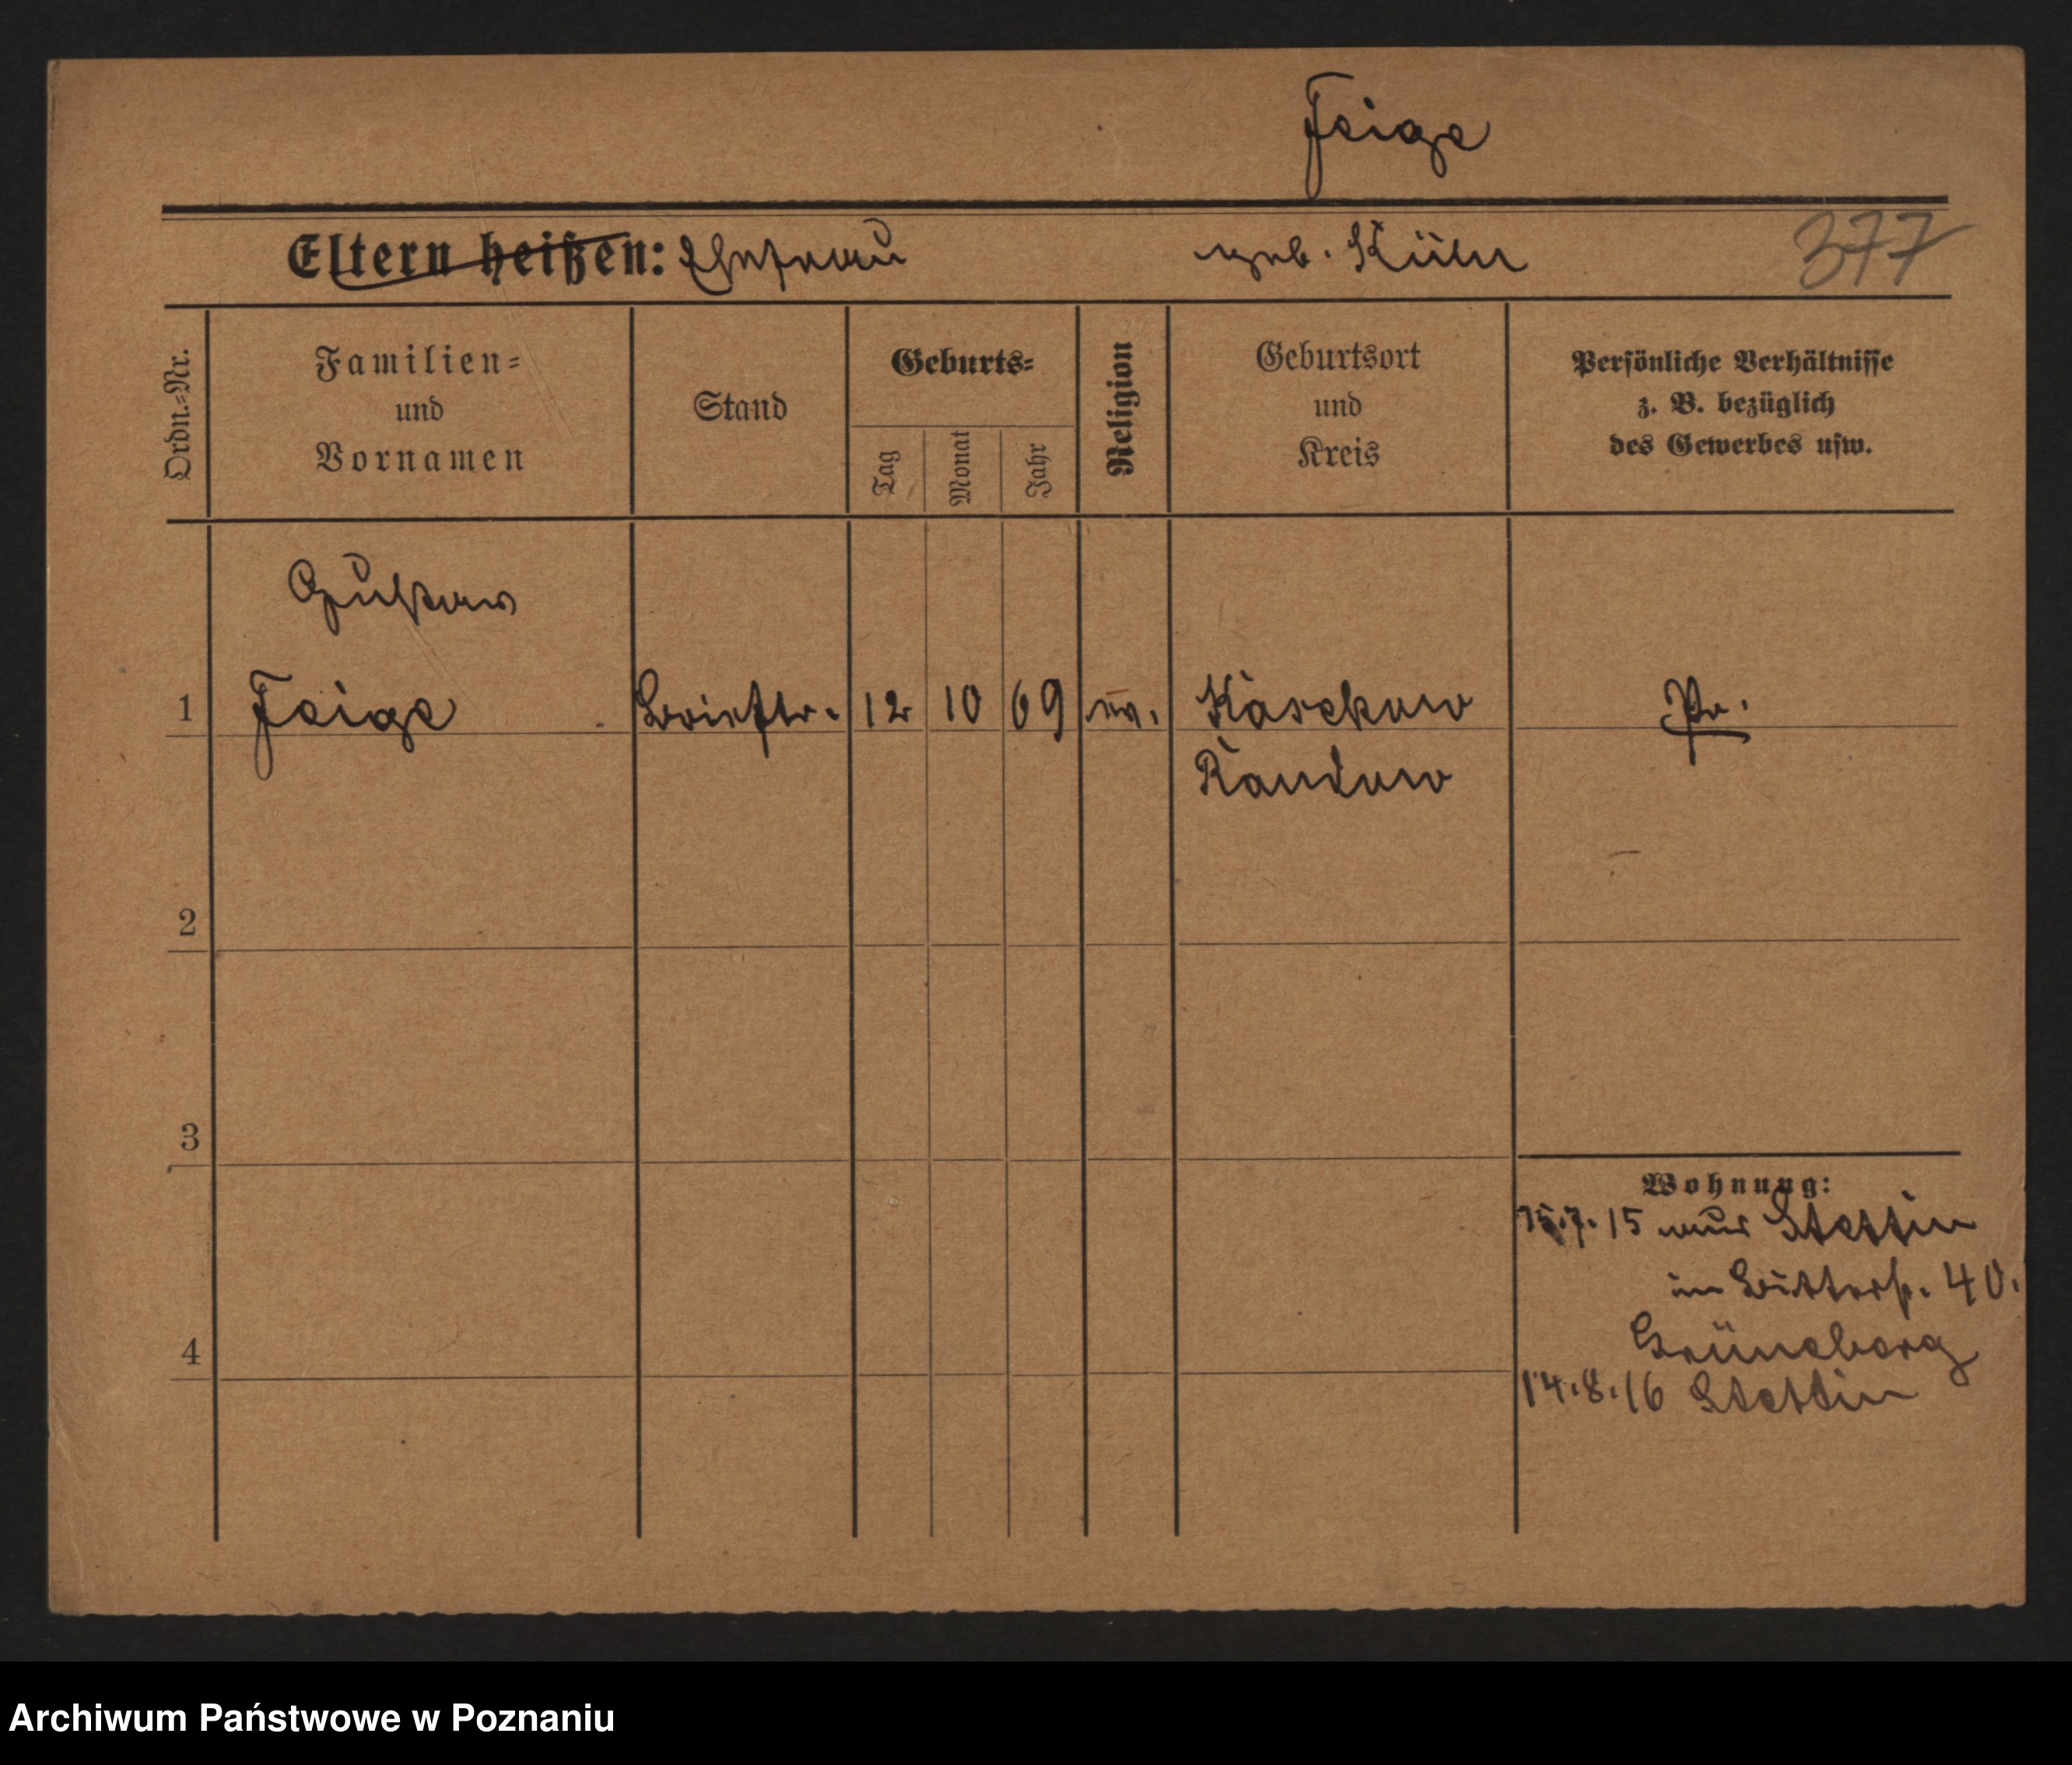 Feige
Eltern heißen: Ehefrau geb. Kühn 377
Ordn.=Nr.
Familien=
und
Vornamen
Stand
Geburts=
Tag
Monat
Jahr
Religion
Geburtsort
und
Kreis
Persönliche Verhältnisse
z. B. bezüglich
des Gewerbes usw.
Gustav
1 Feige Brieftr. 12 10 69 ev. Kasekow Pr.
Randow
2
3
Wohnung:
15.7.15 aus Stettin
in Bitterstr. 40.
Grüneberg
4
14.8.16 Stettin
Archiwum Państwowe w Poznaniu